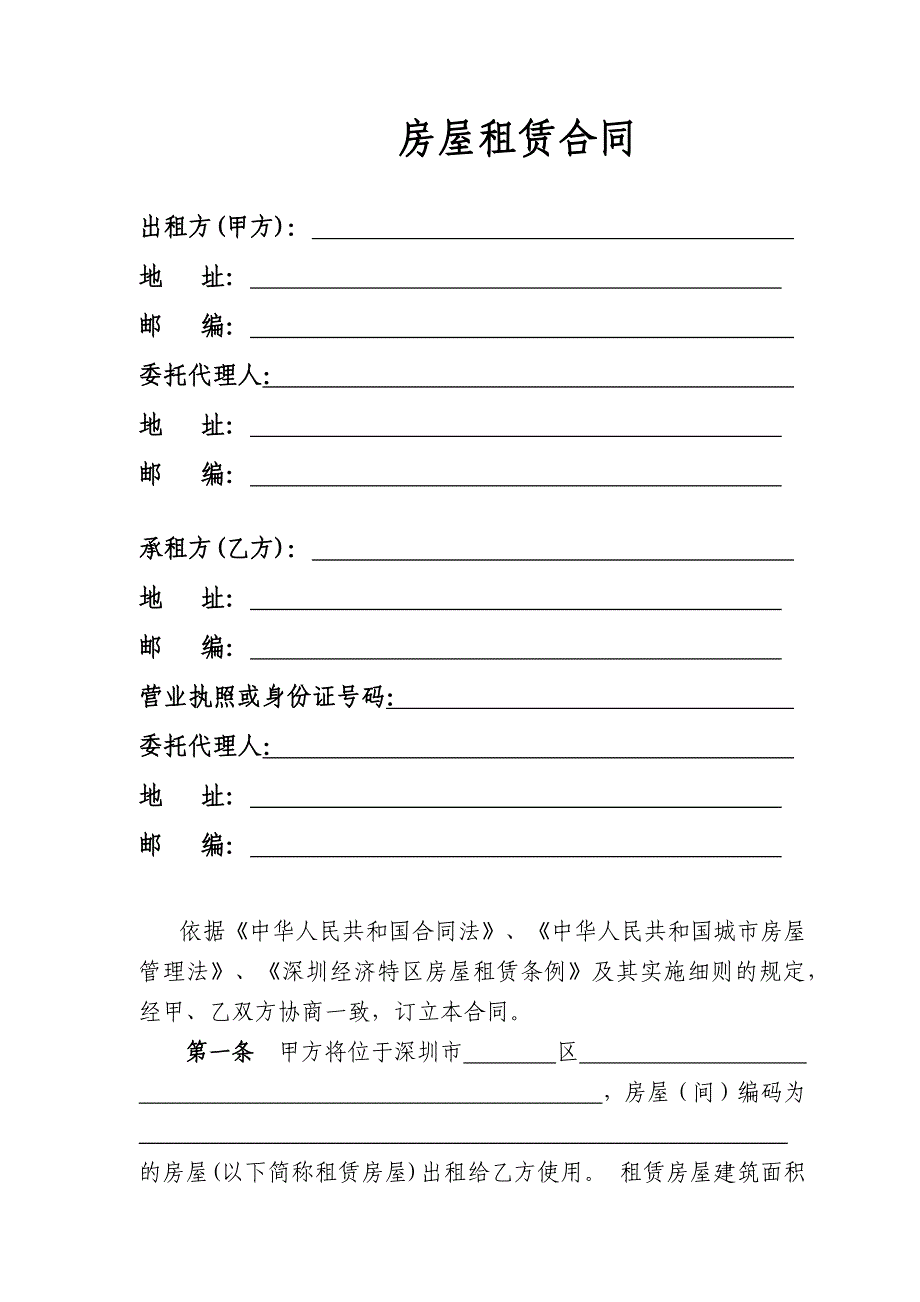 房屋租赁合同
出租方(甲方)：
地 址：
邮 编：
委托代理人：
地 址：
邮 编：
承租方(乙方)：
地 址：
邮 编：
营业执照或身份证号码：
委托代理人：
地 址：
邮 编：
依据《中华人民共和国合同法》、《中华人民共和国城市房屋
管理法》、《深圳经济特区房屋租赁条例》及其实施细则的规定，
经甲、乙双方协商一致，订立本合同。
第一条 甲方将位于深圳市________区____________________
________________________________________，房屋（间）编码为
________________________________________________________
的房屋(以下简称租赁房屋)出租给乙方使用。 租赁房屋建筑面积